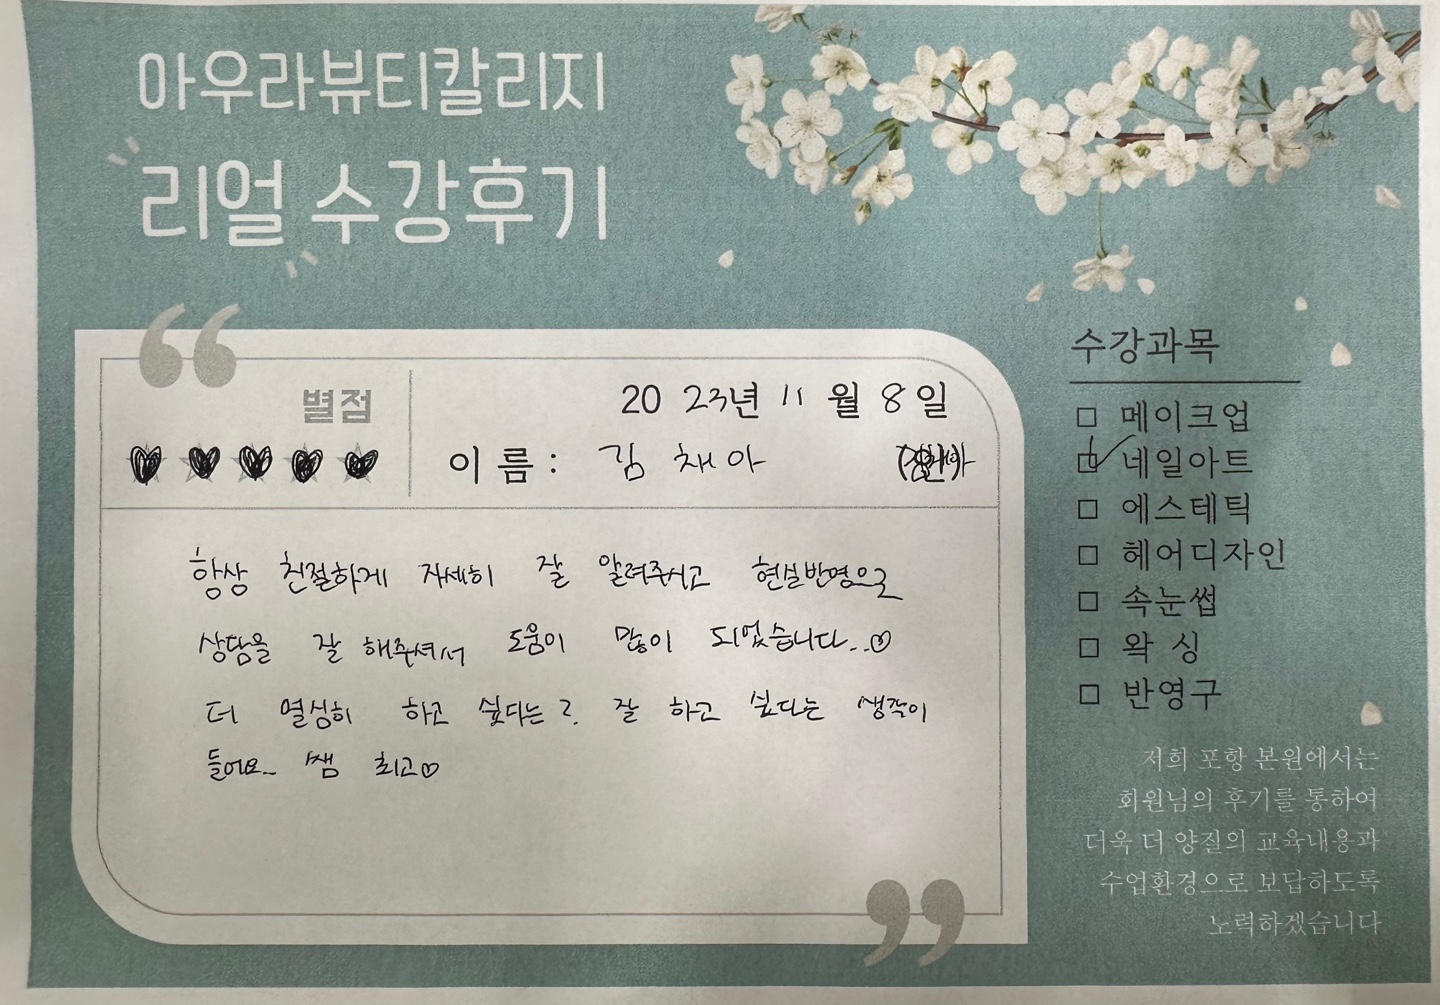 아우라뷰티칼리지
리얼 수강후기
별점
2023년 11월 8일
이름: 김채아
항상 친절하게 자세히 잘 알려주시고 현실반영으로
상담을 잘 해주셔서 도움이 많이 되었습니다..♡
더 열심히 하고 싶다는? 잘 하고 싶다는 생각이
들어요.. 쌤 최고♡
수강과목
□ 메이크업
☑ 네일아트
□ 에스테틱
□ 헤어디자인
□ 속눈썹
□ 왁 싱
□ 반영구
저희 포항 본원에서는
회원님의 후기를 통하여
더욱 더 양질의 교육내용과
수업환경으로 보답하도록
노력하겠습니다